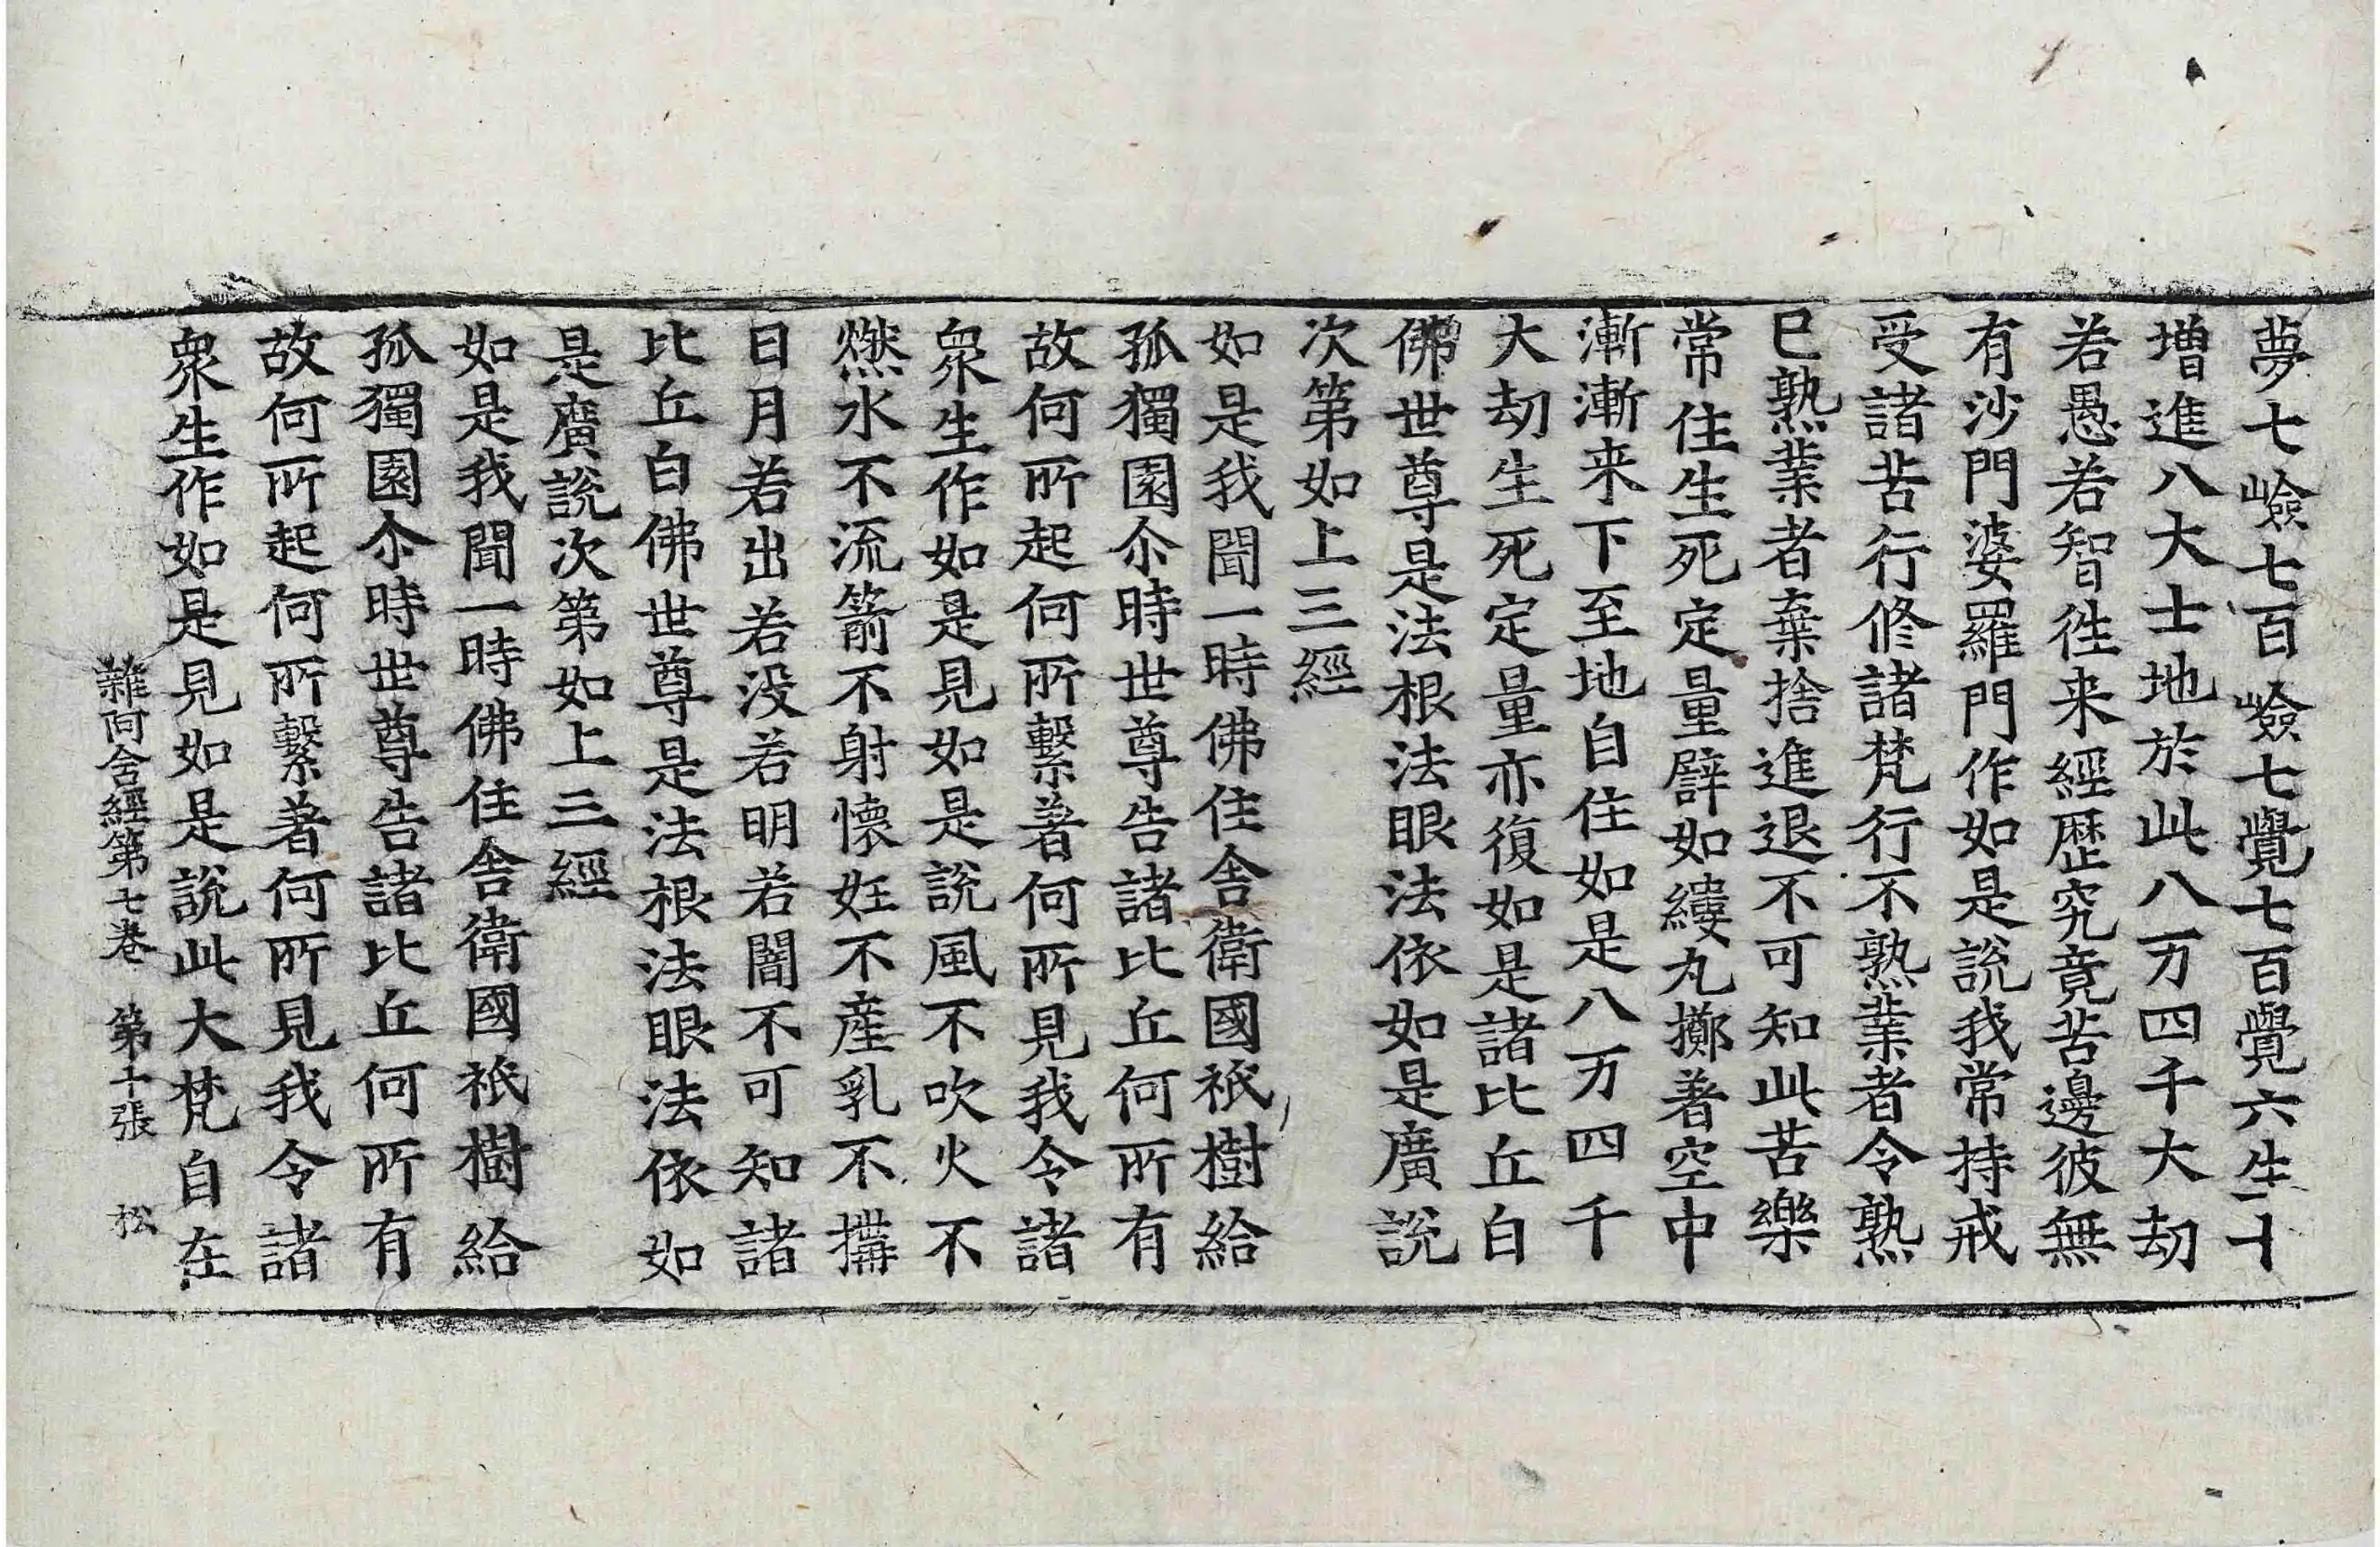 夢七嶮七百嶮七覺七百覺六生十
增進八大士地於此八万四千大劫
若愚若智徃来經歷究竟苦邊彼無
有沙門婆羅門作如是說我常持戒
受諸苦行修諸梵行不熟業者令熟
已熟業者棄捨進退不可知此苦樂
常住生死定量譬如縷丸擲著空中
漸漸来下至地自住如是八万四千
大劫生死定量亦復如是諸比丘白
佛世尊是法根法眼法依如是廣說
次第如上三經
如是我聞一時佛住舍衛國祇樹給
孤獨園尒時世尊告諸比丘何所有
故何所起何所繫著何所見我令諸
衆生作如是見如是說風不吹火不
燃水不流箭不射懷妊不產乳不搆
日月若出若沒若明若闇不可知諸
比丘白佛世尊是法根法眼法依如
是廣說次第如上三經
如是我聞一時佛住舍衛國祇樹給
孤獨園尒時世尊告諸比丘何所有
故何所起何所繫著何所見我令諸
衆生作如是見如是說此大梵自在
雜阿含經第七卷 第十張 松